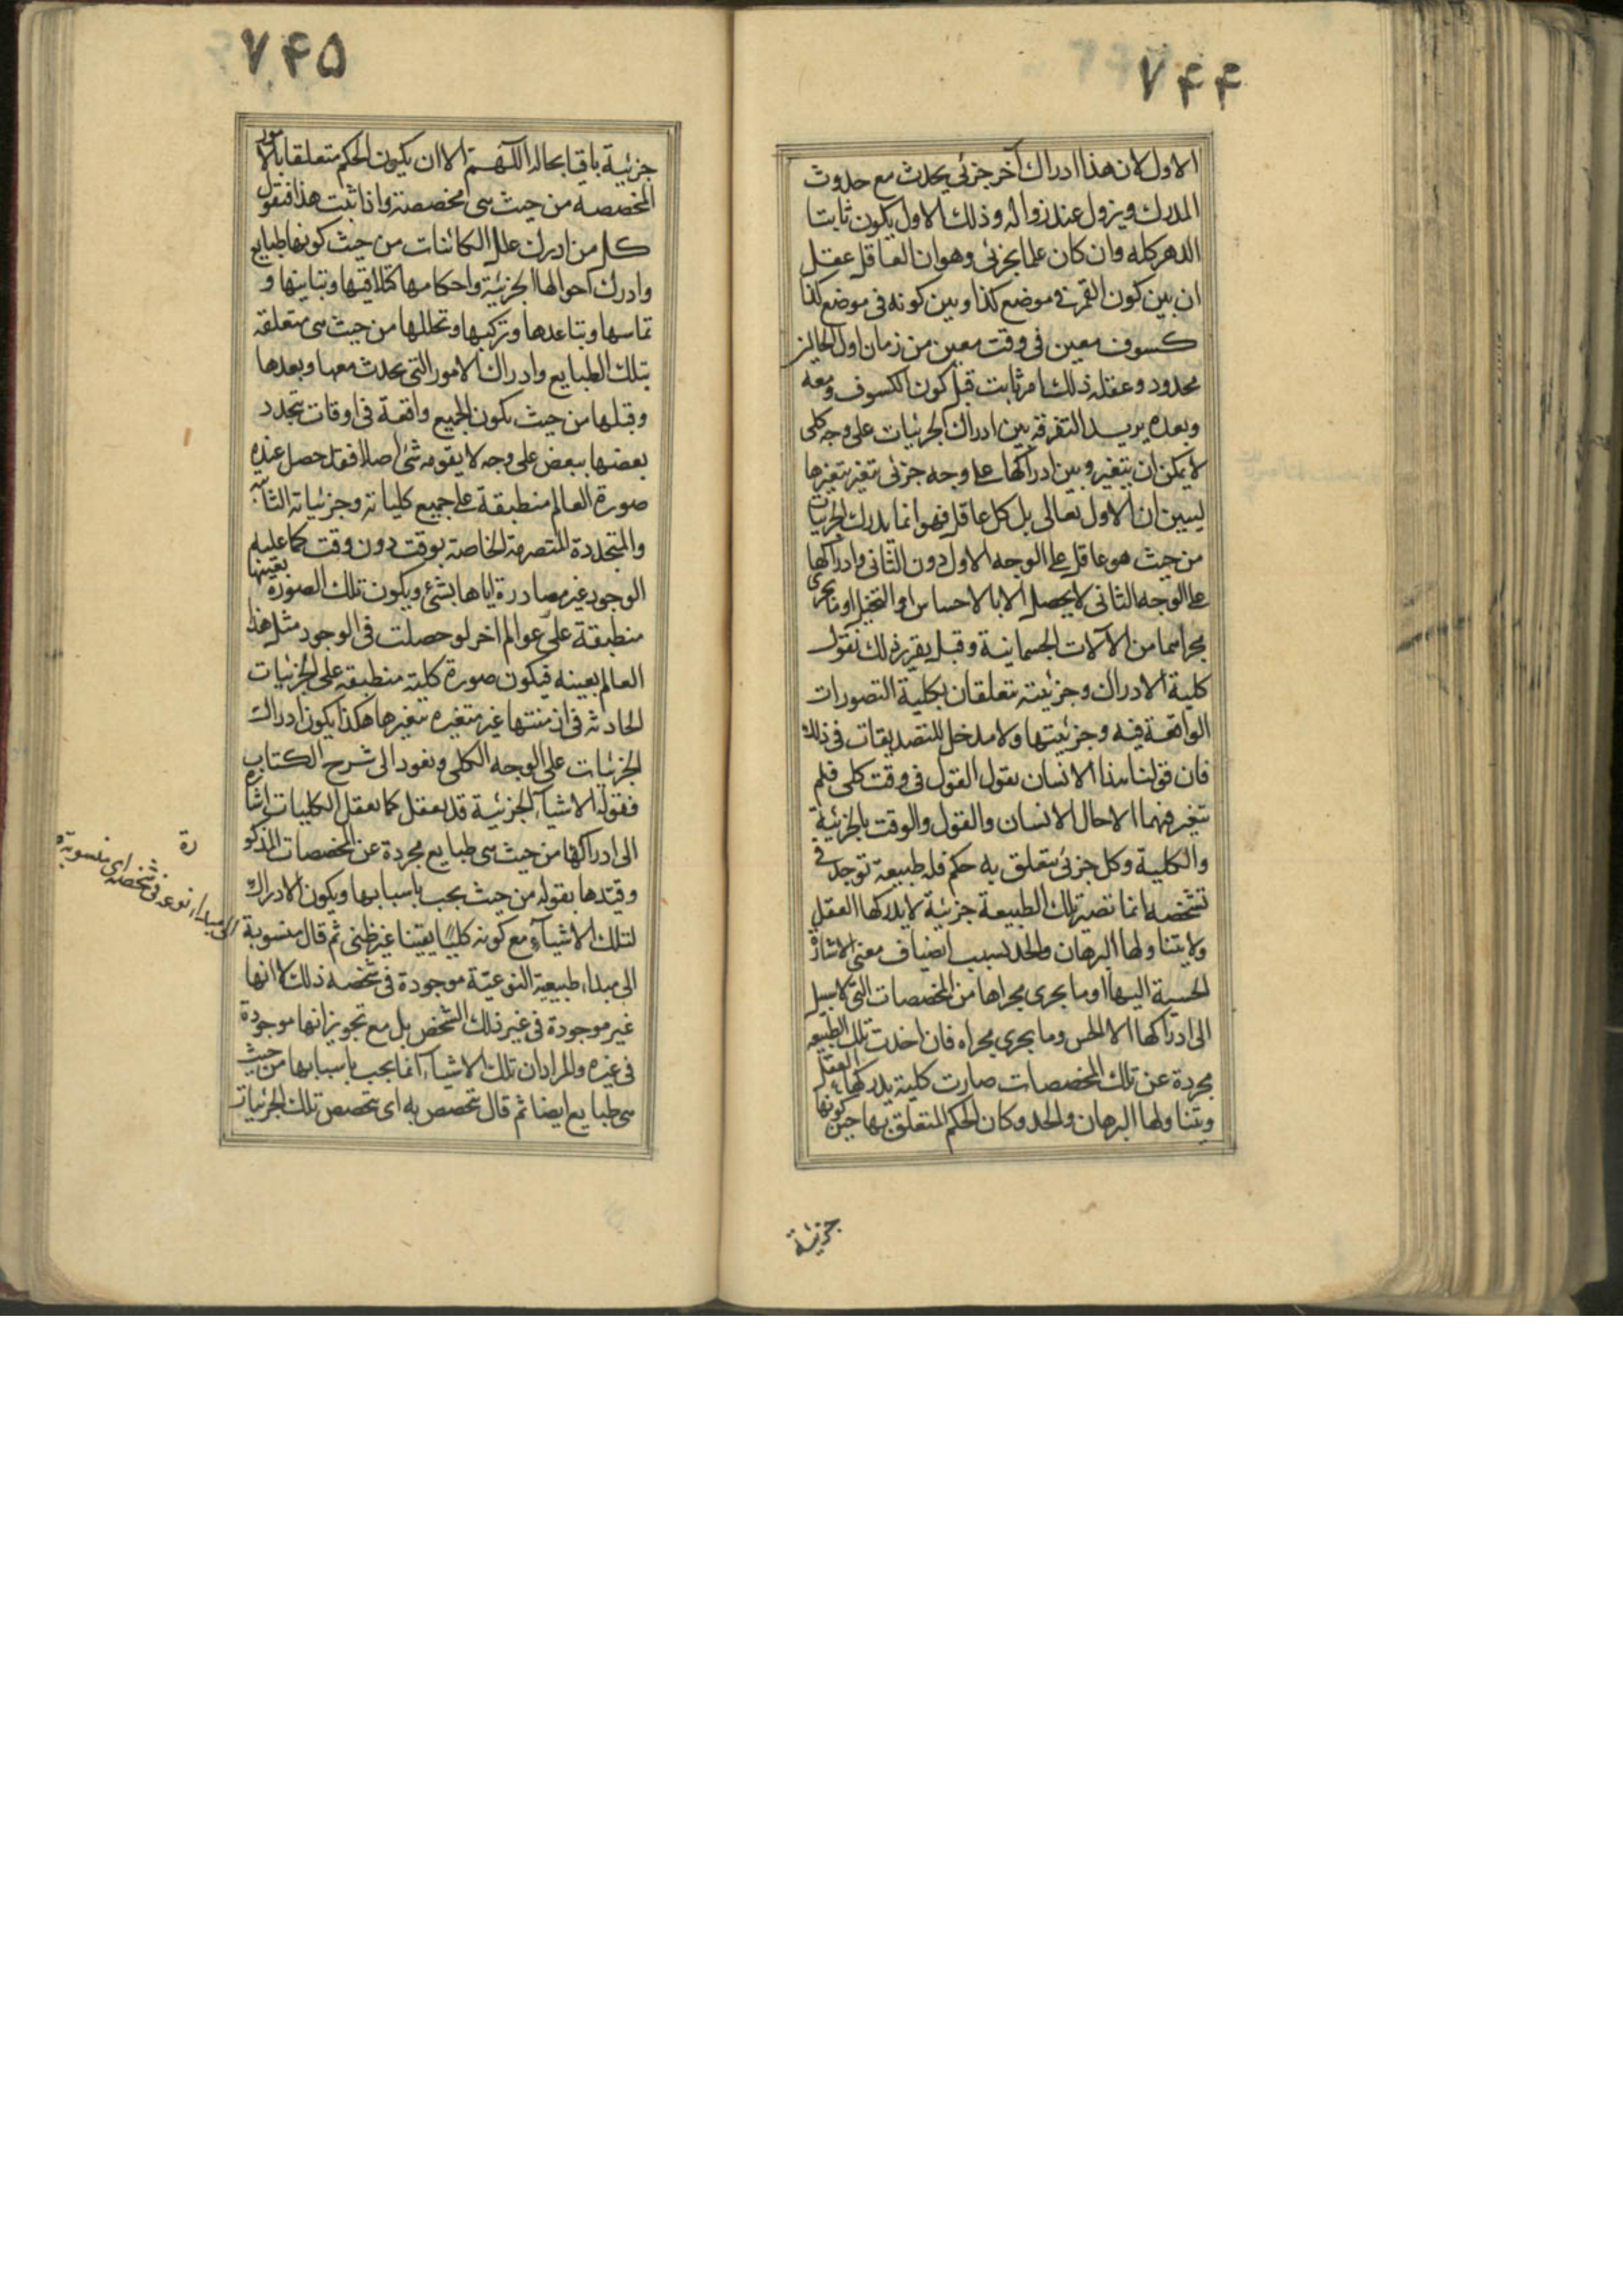 ۷۴۴
الاول لان هذا ادراك آخر جزئي يحدث مع حدوث
المدرك ويزول عند زواله وذلك الاول يكون ثابتا
الدهر كله وان كان علما بجزئي وهو ان العاقل عقل
ان بين كون القمر في موضع كذا وبين كونه في موضع كذا
كسوف معين في وقت معين من زمان اول الحالين
محدود وعقله ذلك امر ثابت قبل كون الكسوف ومعه
وبعده يريد التفرقة بين ادراك الجزئيات على وجه كلى
لا يمكن ان يتغير وبين ادراكها على وجه جزئى متغير بتغيرها
ليبين ان الاول تعالى بل كل عاقل فهو انما يدرك الجزئيات
من حيث هو عاقل على الوجه الاول دون الثانى وادراكها
على الوجه الثانى لا يحصل الا بالاحساس او التخيل او ما يجرى
مجراهما من الآلات الجسمانية وقبل تقرير ذلك نقول
كلية الادراك وجزئيته تتعلقان بكلية التصورات
الواقعة فيه وجزئيتها ولا مدخل للتصديقات فى ذلك
فان قولنا هذا الانسان يقول القول فى وقت كلى فلم
يتغير فيهما الا حال الانسان والقول والوقت بالجزئية
والكلية وكل جزئى يتعلق به حكم فله طبيعة توجد فى
تشخصه انما تصير تلك الطبيعة جزئية لا يدركها العقل
ولا يتناولها البرهان والحد بسبب انضياف معنى الاشارة
الحسية اليها او ما يجرى مجراها من المخصصات التى لا سبيل
الى ادراكها الا الحس وما يجرى مجراه فان اخذت تلك الطبيعة
مجردة عن تلك المخصصات صارت كلية يدركها العقل
ويتناولها البرهان والحد وكان الحكم المتعلق بها حين كونها
جزئية
۷۴۵
جزئية باقيا بحاله اللهم الا ان يكون الحكم متعلقا بالامور
المخصصة من حيث هى مخصصة واذا ثبت هذا فنقول
كل من ادرك علل الكائنات من حيث كونها طبايع
وادرك احوالها الجزئية واحكامها كتلاقيها وتباينها و
تماسها وتباعدها وتركبها وتحللها من حيث هى متعلقة
بتلك الطبايع وادراك الامور التى تحدث معها وبعدها
وقبلها من حيث يكون الجميع واقعة فى اوقات يتحدد
بعضها ببعض على وجه لا يفوته شئ اصلا فقد حصل عنده
صورة العالم منطبقة على جميع كلياته وجزئياته الثابتة
والمتجددة المتصرمة الخاصة بوقت دون وقت كما عليه
الوجود غير مصادرة اياها بشئ ويكون تلك الصورة بعينها
منطبقة على عوالم اخر لو حصلت فى الوجود مثل هذا
العالم بعينه فيكون صورة كلية منطبقة على الجزئيات
الحادثه فى ازمنتها غير متغيره بتغيرها هكذا يكون ادراك
الجزئيات على الوجه الكلى ونعود الى شرح الكتاب
فقوله الاشياء الجزئية قد تعقل كما تعقل الكليات اشارة
الى ادراكها من حيث هى طبايع مجردة عن المخصصات المذكو
رة
وقيدها بقوله من حيث يجب باسبابها ويكون الادراك
لتلك الاشياء مع كونه كليًا يقينا غير ظنى ثم قال منسوبة
الى مبداء نوعه فى شخصه اى منسوبة
الى مبداء طبيعة النوعيّة موجودة فى شخصه ذلك لا انها
غير موجودة فى غير ذلك الشخص بل مع تجويز انها موجودة
فى غيره والمراد ان تلك الاشياء انما يجب باسبابها من حيث
هى طبايع ايضا ثم قال تتخصص به اى تتخصص تلك الجزئيات